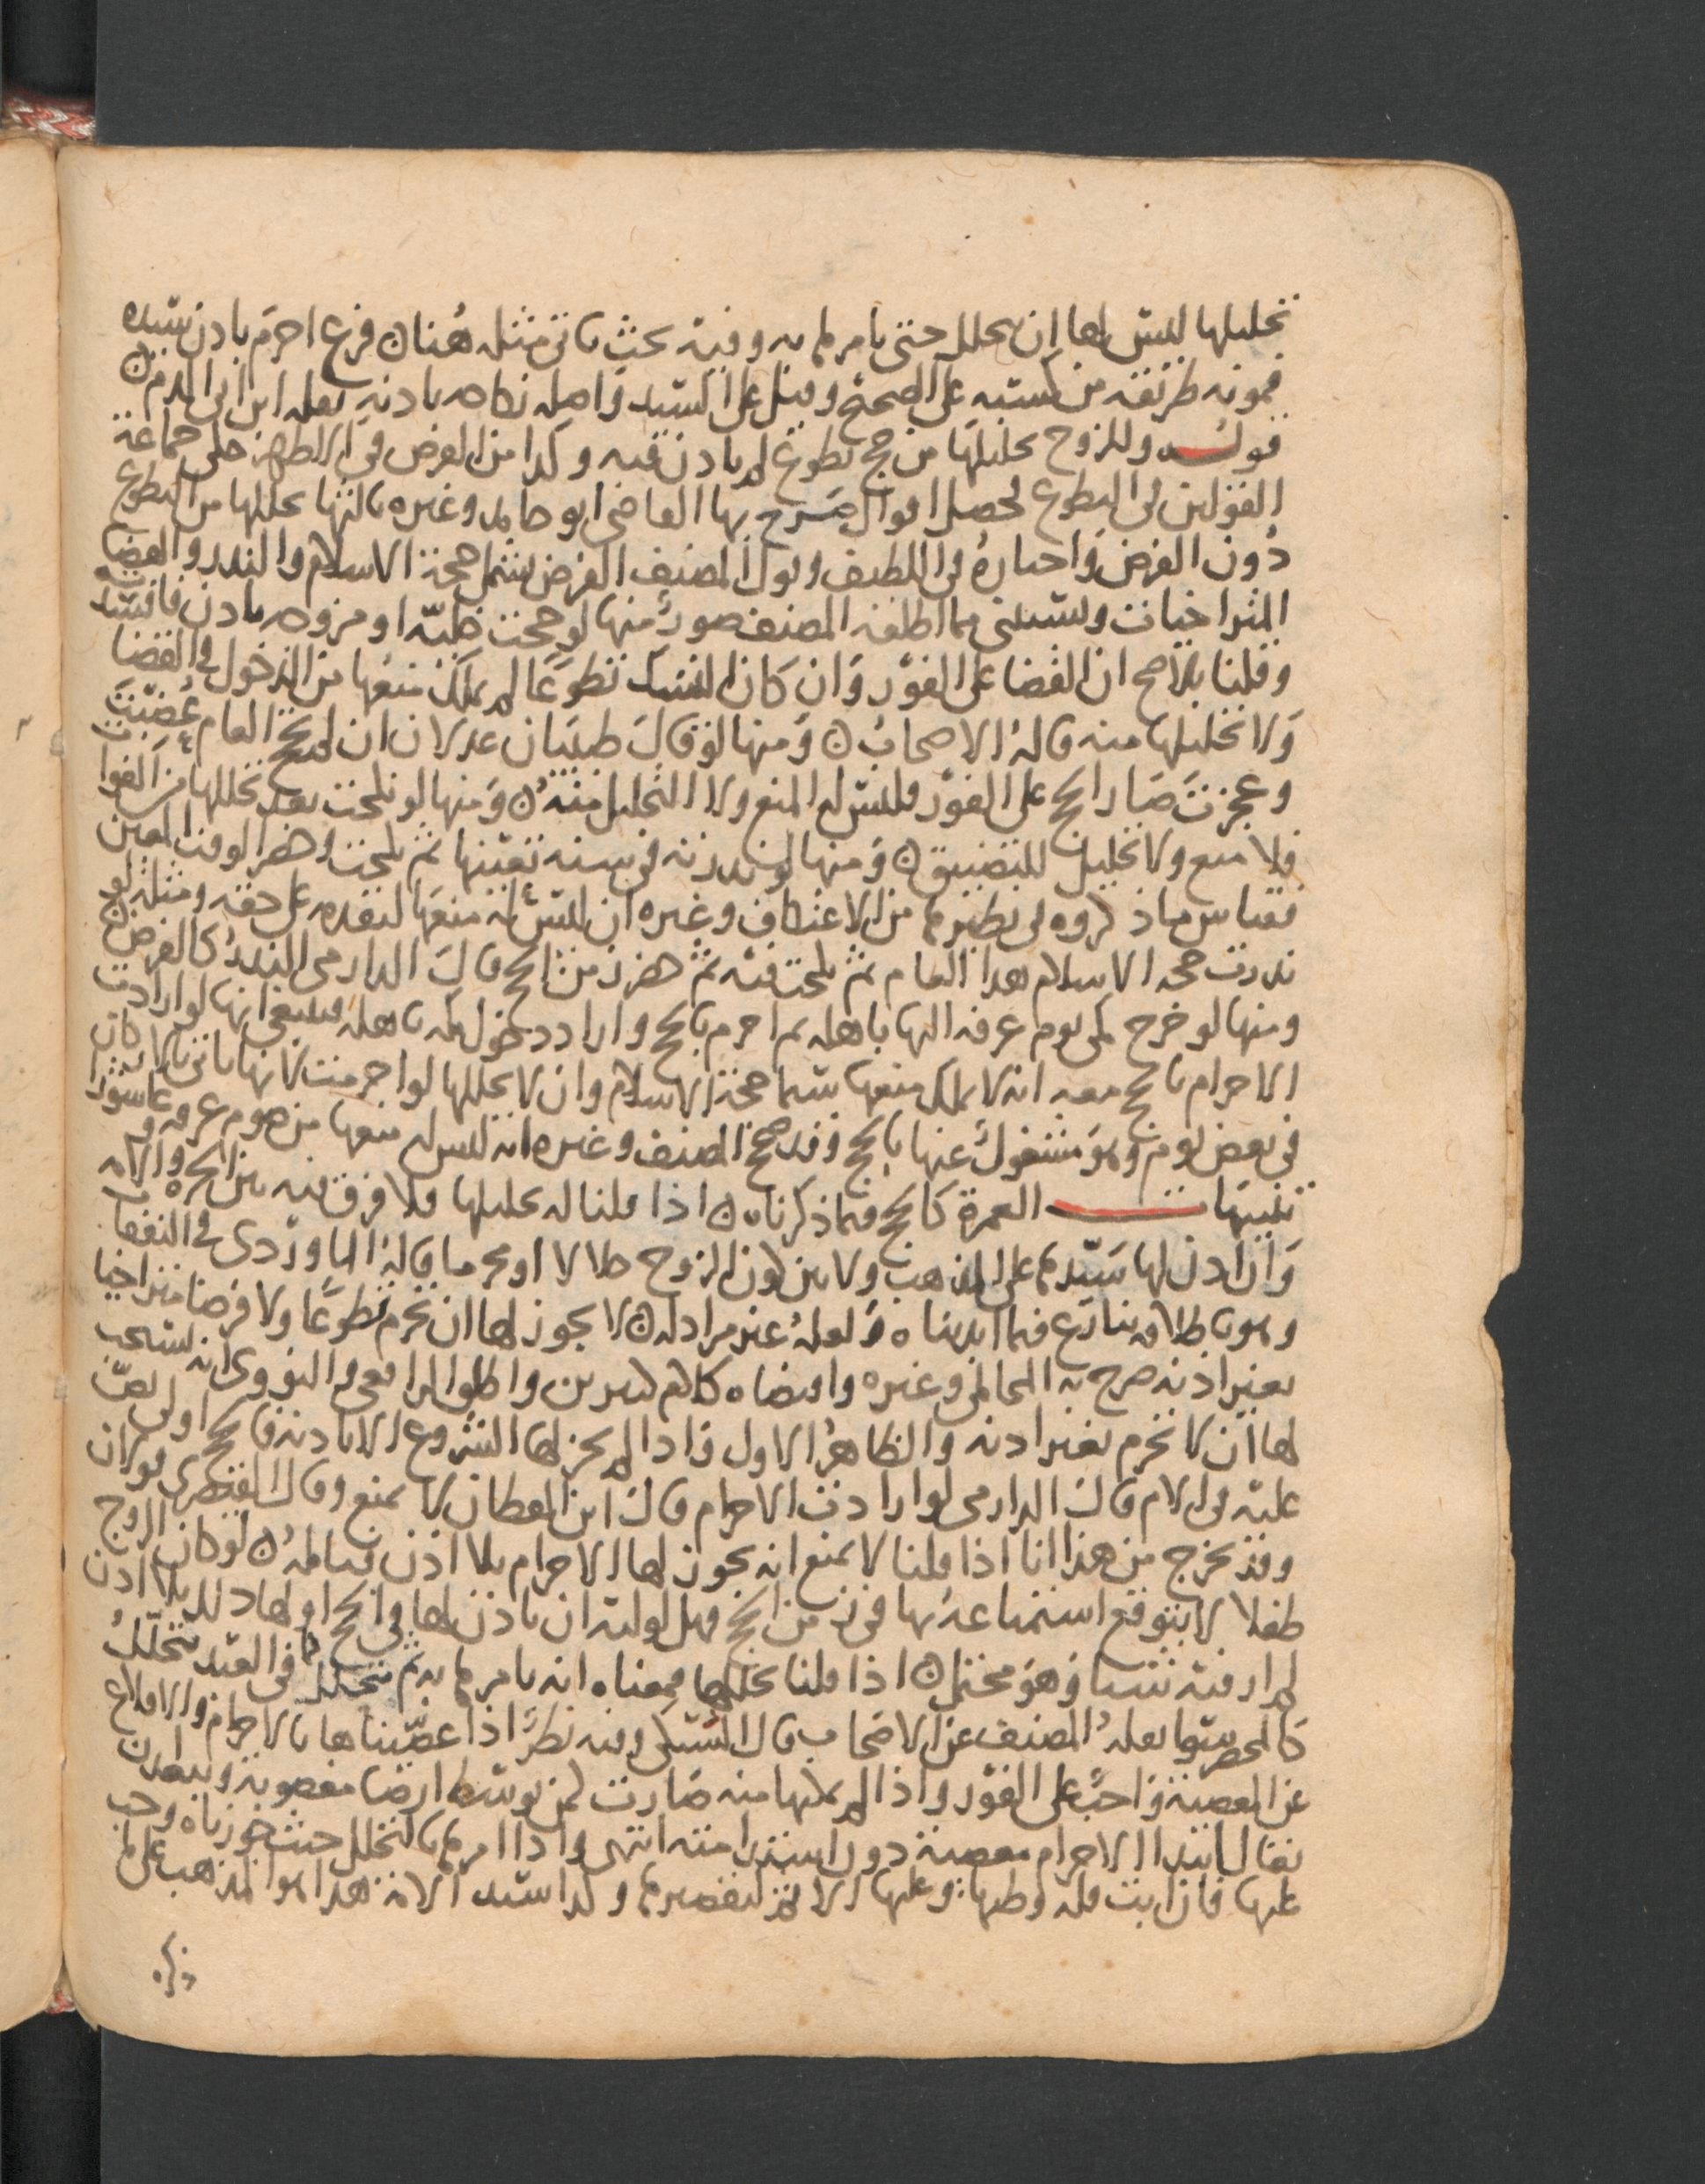 تحليلها ليس لها ان تتحلل حتى يامرها به وفيه بحث ياتي مثله هنا ن فرع احرم باذن سيده
فمونه طريقه من كسبه على الصحيح وقيل على السيد واصله نكاحه باذنه نقله ابن ابي الدم ن
قوله وللزوج تحليلها من حج تطوع لم ياذن فيه وكذا من الفرض في الاظهر حكى جماعة
القولين في التطوع فحصل اقوال صرح بها القاضي ابو حامد وغيره ثالثها يحللها من التطوع
دون الفرض واختاره في اللطيف وقول المصنف الفرض يشمل حجة الاسلام والنذر والقضا
المتراخيات ويستثنى مما اطلقه المصنف صور منها لو حجت خلية او مزوجه باذن فافسدته
وقلنا بالاصح ان القضا على الفور وان كان النسك تطوعا لم يملك منعها من الدخول في القضا
ولا تحليلها منه قاله الاصحاب ن ومنها لو قال طبيبان عدلان ان لم تحج العام عضبت
وعجزت صار الحج على الفور فليس له المنع ولا التحليل منه ن ومنها لو نكحت بعد تحللها من الفوات
فلا منع ولا تحليل للتضييق ن ومنها لو نذرته في سنه تعينها ثم نكحت وحضر الوقت المعين
فقياس ما ذكروه في نظيرها من الاعتكاف وغيره ان ليس له منعها لتقدمه على حقه ومثله لو
نذرت حجه الاسلام هذا العام ثم نكحت فيه ثم حضر زمن الحج قال الدارمي النذر كالفرض ن
ومنها لو خرج مكي يوم عرفه اليها باهله ثم احرم بالحج واراد دخول مكه باهله فينبغي انها لو ارادت
الاحرام بالحج معه انه لا يملك منعها سيما حجة الاسلام وان لا يحللها لو احرمت لانها تاتي بالاركان
في بعض يوم وهو مشغول عنها بالحج وقد صحح المصنف وغيره انه ليس له منعها من صوم عرفه وعاشورا
تنبيهات العمرة كالحج فيما ذكرناه ن اذا قلنا له تحليلها فلا فرق فيه بين الحره والامه
وان اذن لها سيدها على المذهب ولا بين كون الزوج حلالا او محرما قاله الماوردي في النفقات
وهو باطلاقه ينازع فيما ابديناه ولعله غير مراد له ن لا يجوز لها ان تحرم تطوعا ولا فرضا متراخيا
بغير اذنه صرح به المحاملي وغيره واقتضاه كلام كثيرين واطلق الرافعي والنووي انه يستحب
لها ان لا تحرم بغير اذنه والظاهر الاول فاذا لم يجز لها الشروع الا باذنه فالحج اولى نص
عليه في الام قال الدارمي لو ارادت الاحرام قال ابن القطان لا يمنع وقال القيصري قولان
وقد يخرج من هذا انا اذا قلنا لا يمنع انه يجوز لها الاحرام بلا اذن فتامله ن لو كان الزوج
طفلا لا يتوقع استمتاعه بها في زمن الحج فهل لوليه ان ياذن لها في الحج او لها ذلك بلا اذن
لم ار فيه شيئا وهو محتمل ن اذا قلنا يحللها فمعناه انه يامرها به ثم تتحلل كما في العبد تتحلل
كالمحصر سوا نقله المصنف عن الاصحاب قال السبكي وفيه نظر اذا عصيناها بالاحرام والاقلاع
عن المعصية واجب على الفور واذا لم يمكنها منه صارت كمن توسط ارضا مغصوبة ويبعد ان
يقال ابتدا الاحرام معصية دون استدامته انتهى واذا امرها بالتحلل حيث جوزناه وجب
عليها فان ابت فله وطيها وعليها الاثم لتقصيرها وكذا سيد الامة هذا هو المذهب على ما
ذكره